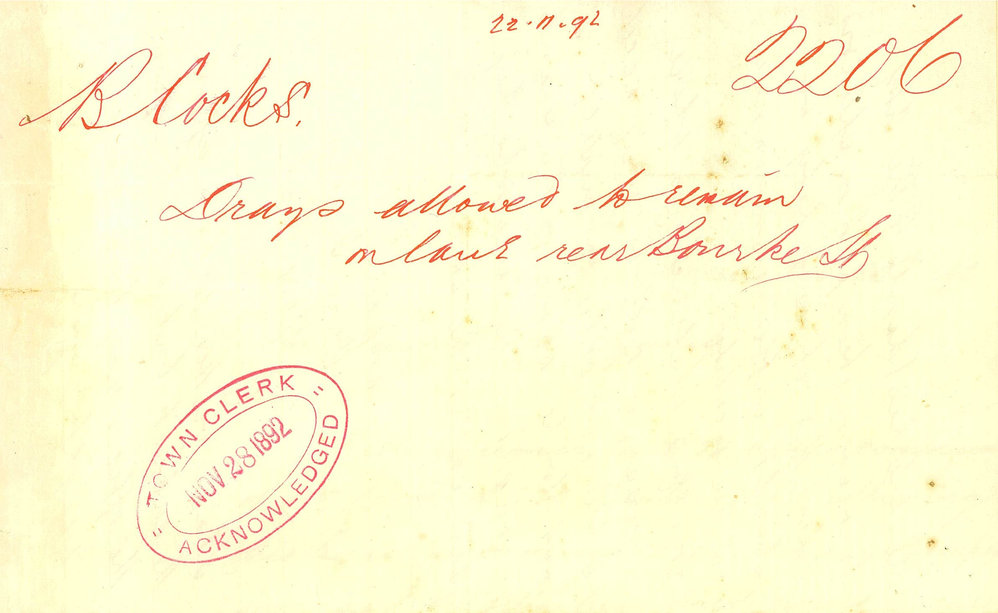 22.11.92
2206
B Cocks.
Drays allowed to remain
in lane rear Bourke St
= TOWN CLERK =
NOV 28 1892
ACKNOWLEDGED